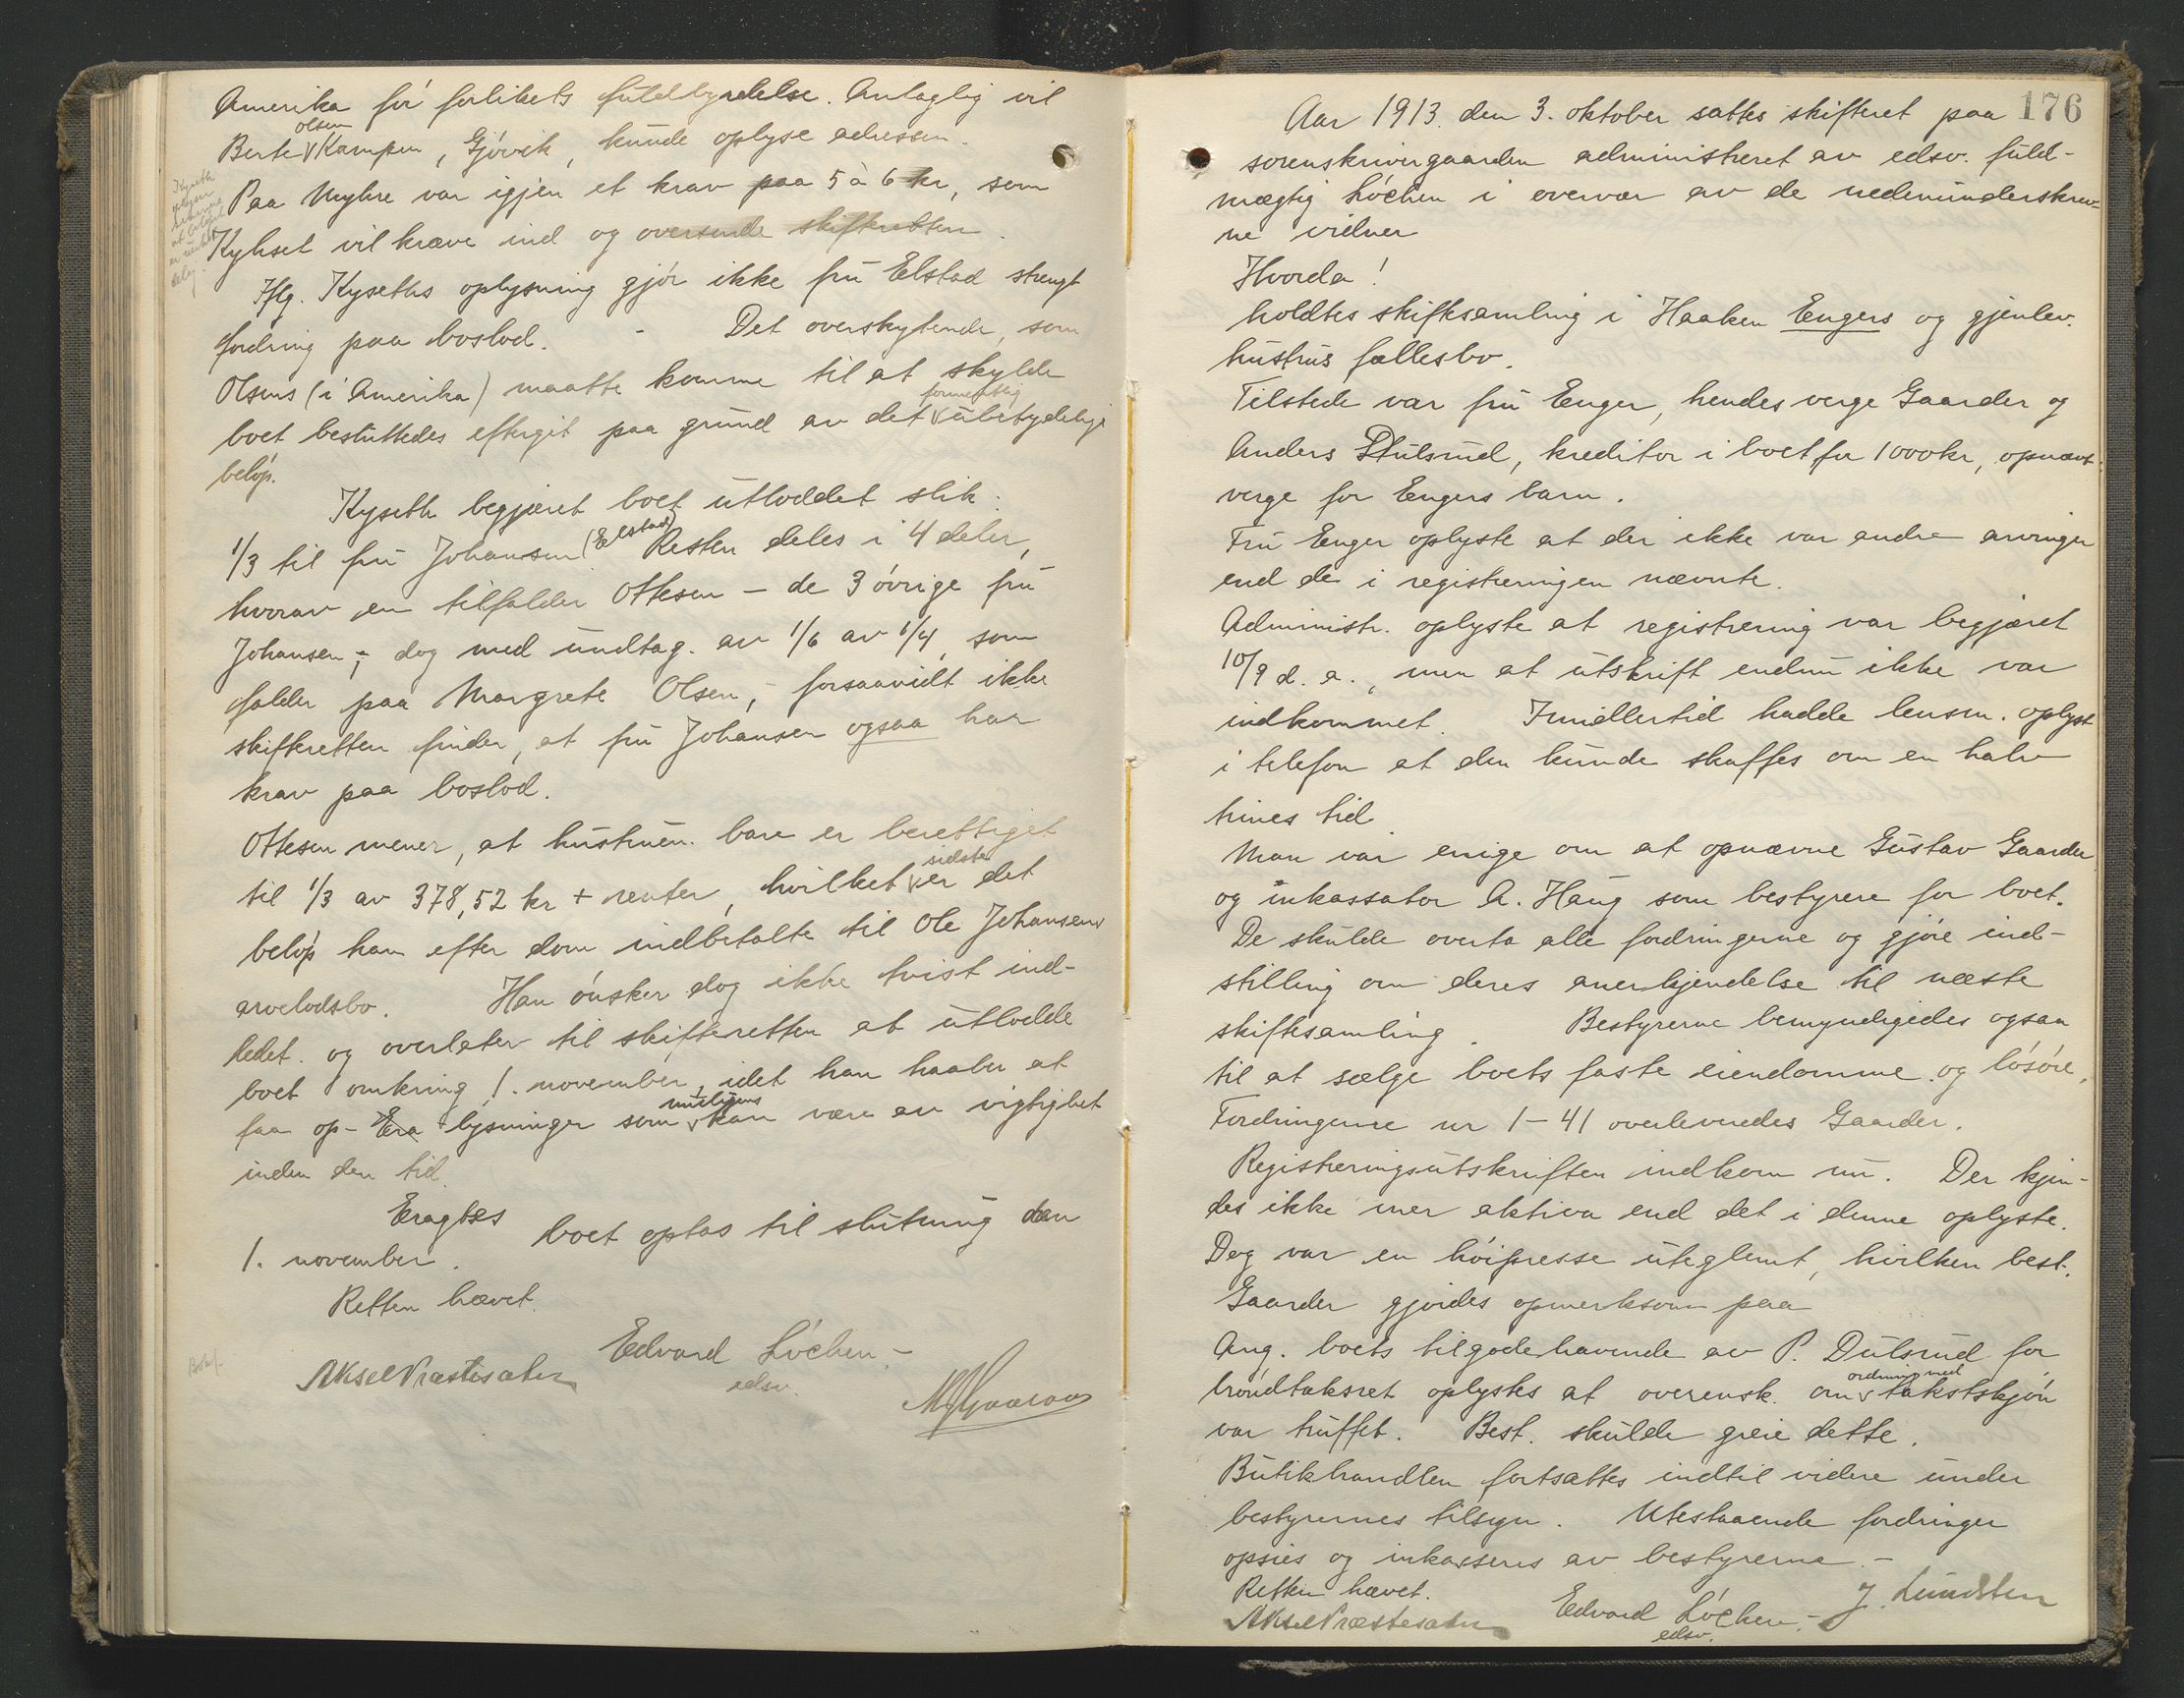 Amerika før forlikets fuldbyrdelse. Antaglig vil
olsen
Berte Kampen, Gjøvik, kunde oplyse adressen.
Paa Myhre var igjen et krav paa 5 à 6 kr, som
Kyhset vil kræve ind og oversende skifteretten.
Iflg. Kyseths oplysning gjør ikke frü Elstad strengt
fordring paa boslod. - Det overskytende, som
Olsens (i Amerika) maatte komme til at skylde
formentlig
boet besluttedes eftergit paa grund av det ubetydelige
beløp.
Kyseth begjæret boet utloddet slik:
1/3 til frü Johansen (Elstad) Resten deles i 4 deler,
hvorav en tilfalder Ottesen - de 3 øvrige frü
Johansen; dog med undtag. av 1/6 av 1/4, som
falder paa Margrete Olsen, - forsaavidt ikke
skifteretten finder, at frü Johansen ogsaa har
krav paa boslod.
Ottesen mener, at hustruen bare er berettiget
sidste
til 1/3 av 378,52 kr + renter, hvilket er det
beløp han efter dom indbetalte til Ole Johansens
arvelodsbo. Han ønsker dog ikke tvist ind-
ledet og overlater til skifteretten at utlodde
boet omkring 1. november, idet han haaber at
muligens
faa op- Era lysninger som kan være av vigtighet
inden den tid.
Eragtes
boet optas til slutning den
1. november.
Retten hævet.
Edvard Løchen -
edsv.
Aksel Præstesæter
176
Aar 1913 den 3. oktober sattes skifteret paa
sorenskrivergaarden administreret av edsv. fuld-
mægtig Løchen i overvær av de nedenunderskrev-
ne vidner
Hvorda!
holdtes skiftesamling i Haaken Engers og gjenlev.
hustrus fællesbo.
Tilstede var frü Enger, hendes verge Gaarder og
Anders Dulsrud, kreditor i boet for 1000 kr, opnævt
verge for Engers barn.
Frü Enger oplyste at der ikke var andre arvinger
end de i registreringen nævnte.
Administr. oplyste at registrering var begjæret
10/9 d. a., men at utskrift endnu ikke var
indkommet. Imidlertid hadde lensm. oplyst
i telefon at den kunde skaffes om en halv
times tid.
Man var enige om at opnævne Gustav Gaarder
og inkassator A. Haug som bestyrere for boet.
De skulde overta alle fordringerne og gjøre ind-
stilling om deres anerkjendelse til næste
skiftesamling. Bestyrerne bemyndigedes ogsaa
til at sælge boets faste eiendomme og løsøre.
Fordringerne nr 1-41 overleveredes Gaarder.
Registreringsutskriften indkom nu. Der kjen-
des ikke mer aktiva end det i denne oplyste.
Dog var en høipresse uteglemt, hvilken best.
Gaarder gjordes opmerksom paa
Ang. boets tilgodehavende av P. Dulsrud for
ordning med
brøndtaksret oplystes at overensk. om takstskjøn
var truffet. Best. skulde greie dette.
Butikhandlen fortsattes indtil videre under
bestyrernes tilsyn. Utestaaende fordringer
opsies og inkasseres av bestyrerne. -
Retten hævet.
Aksel Præstesæter
Edvard Løchen. -
edsv.
J. Lundsten